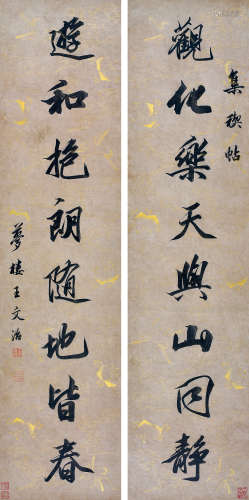 集禊帖
觀化樂天與山同静
遊和抱朗隨地皆春
夢樓王文治